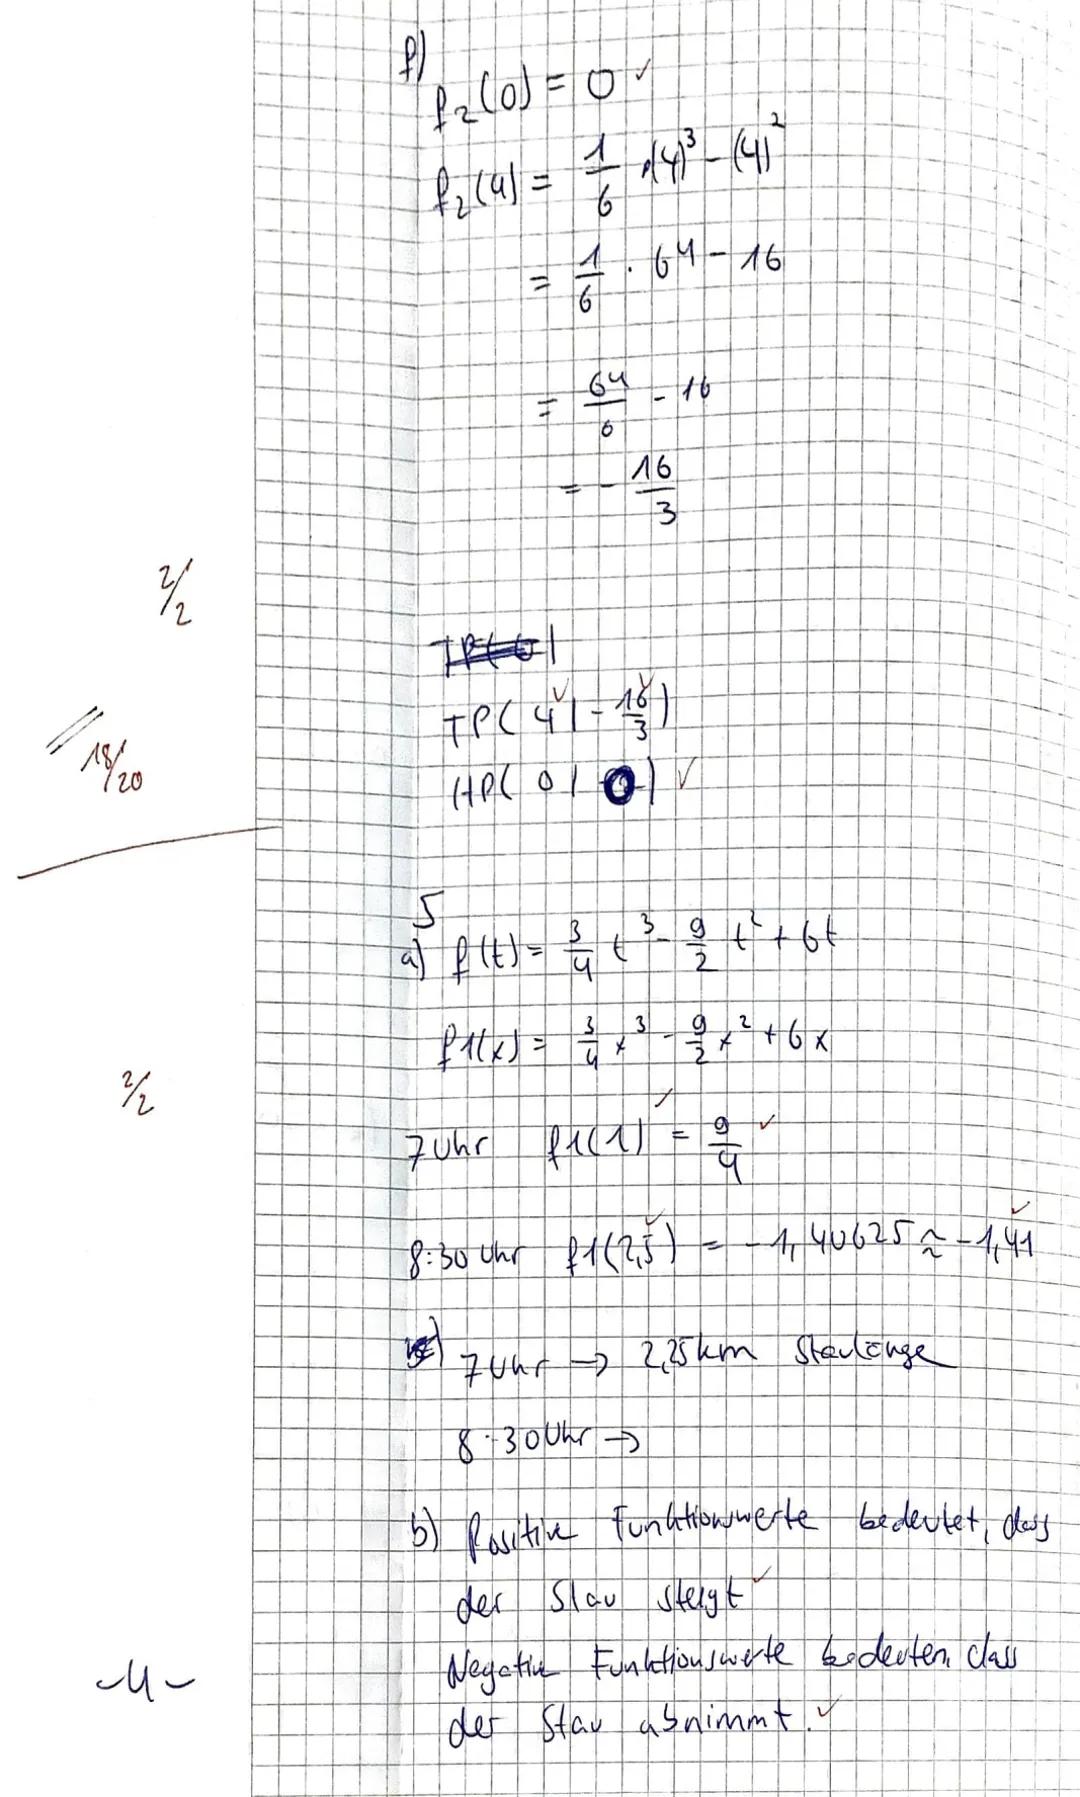 f)
f₂(0) = 0 ✓
f₂(4) = 1/6 · (4)³ - (4)²
= 1/6 · 64 - 16
= 64/6 - 16
= - 16/3
2/2
TP( 4 | - 16/3 )
HP( 0 | 0 ) ✓
18/20
5
a) f(t) = 3/4 t³ - 9/2 t² + 6t
f1(x) = 3/4 x³ - 9/2 x² + 6x
2/2
7 Uhr f1(1) = 9/4 ✓
8:30 Uhr f1(2,5) = -1,40625 ≈ -1,41
7 Uhr → 2,25 km Staulänge
8:30 Uhr →
b) Positive Funktionswerte bedeutet, dass
der Stau steigt ✓
Negative Funktionswerte bedeuten, dass
-4-
der Stau abnimmt. ✓